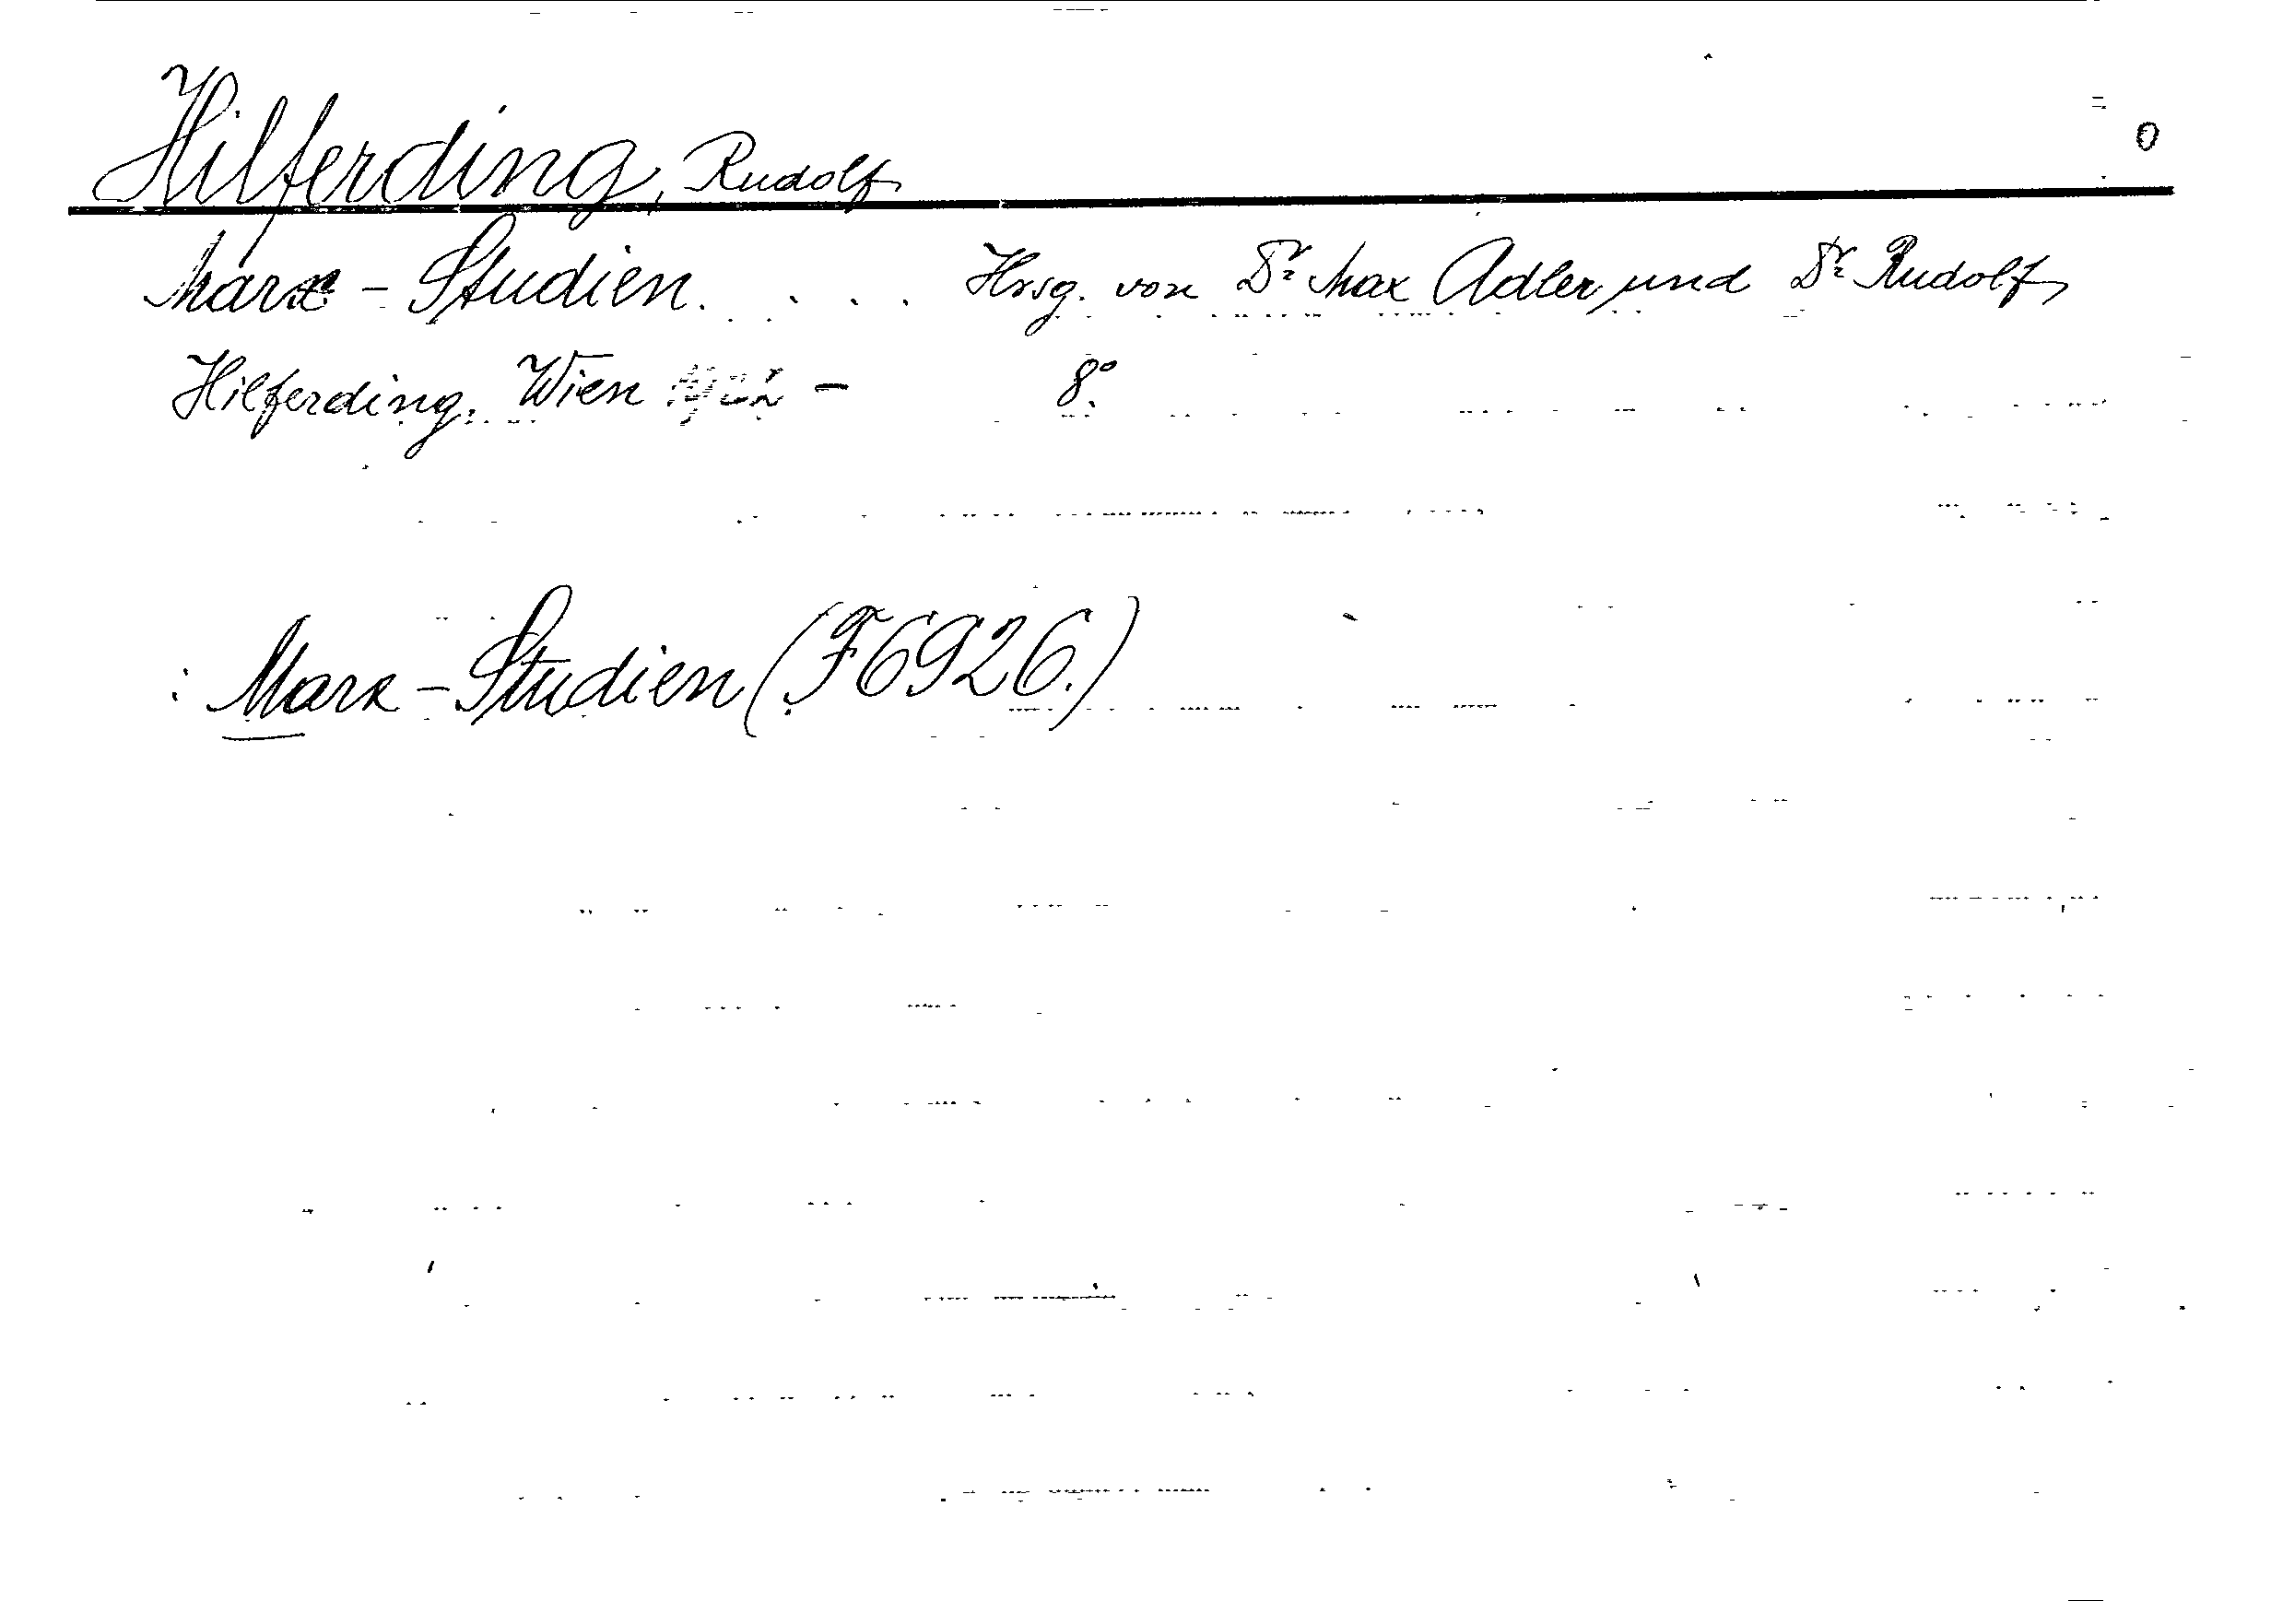 Hilferding, Rudolf
0
Marx - Studien. . . . Hrsg. von Dr. Max Adler und Dr. Rudolf
Hilferding. Wien — 8°.
: Marx - Studien (F6926.)